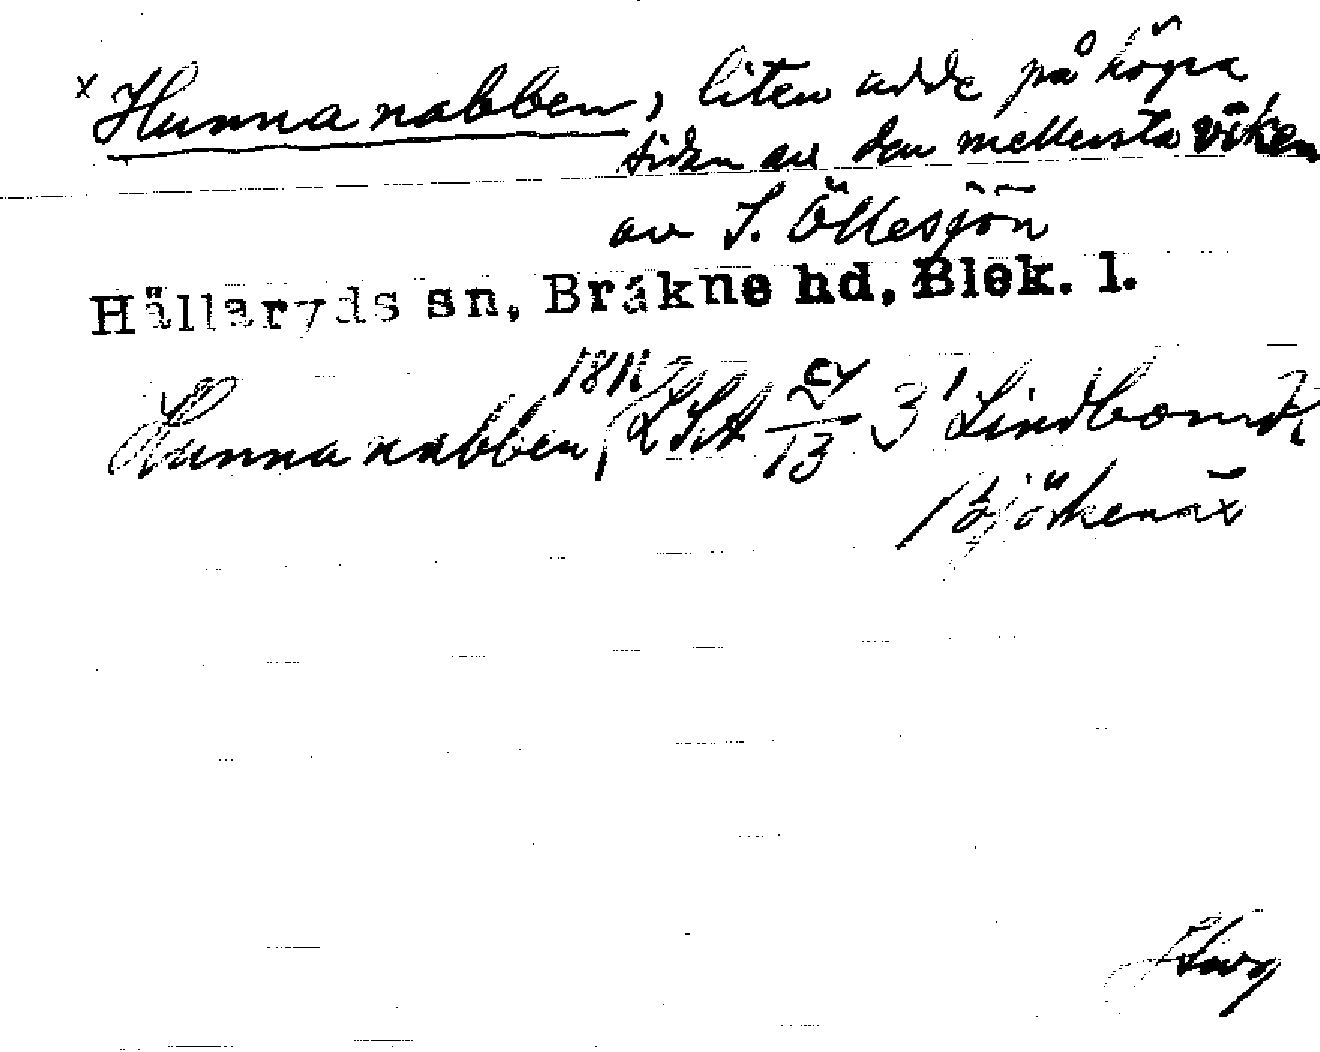 x Hunnanabben, liten udde på högra
sidan av den mellersta viken
av S. Öllesjön
Hällaryds sn, Bräkne hd, Blek. l.
1812
Hunnanabben (LSA 24/13 3¹ Lindbom
Björkenäs